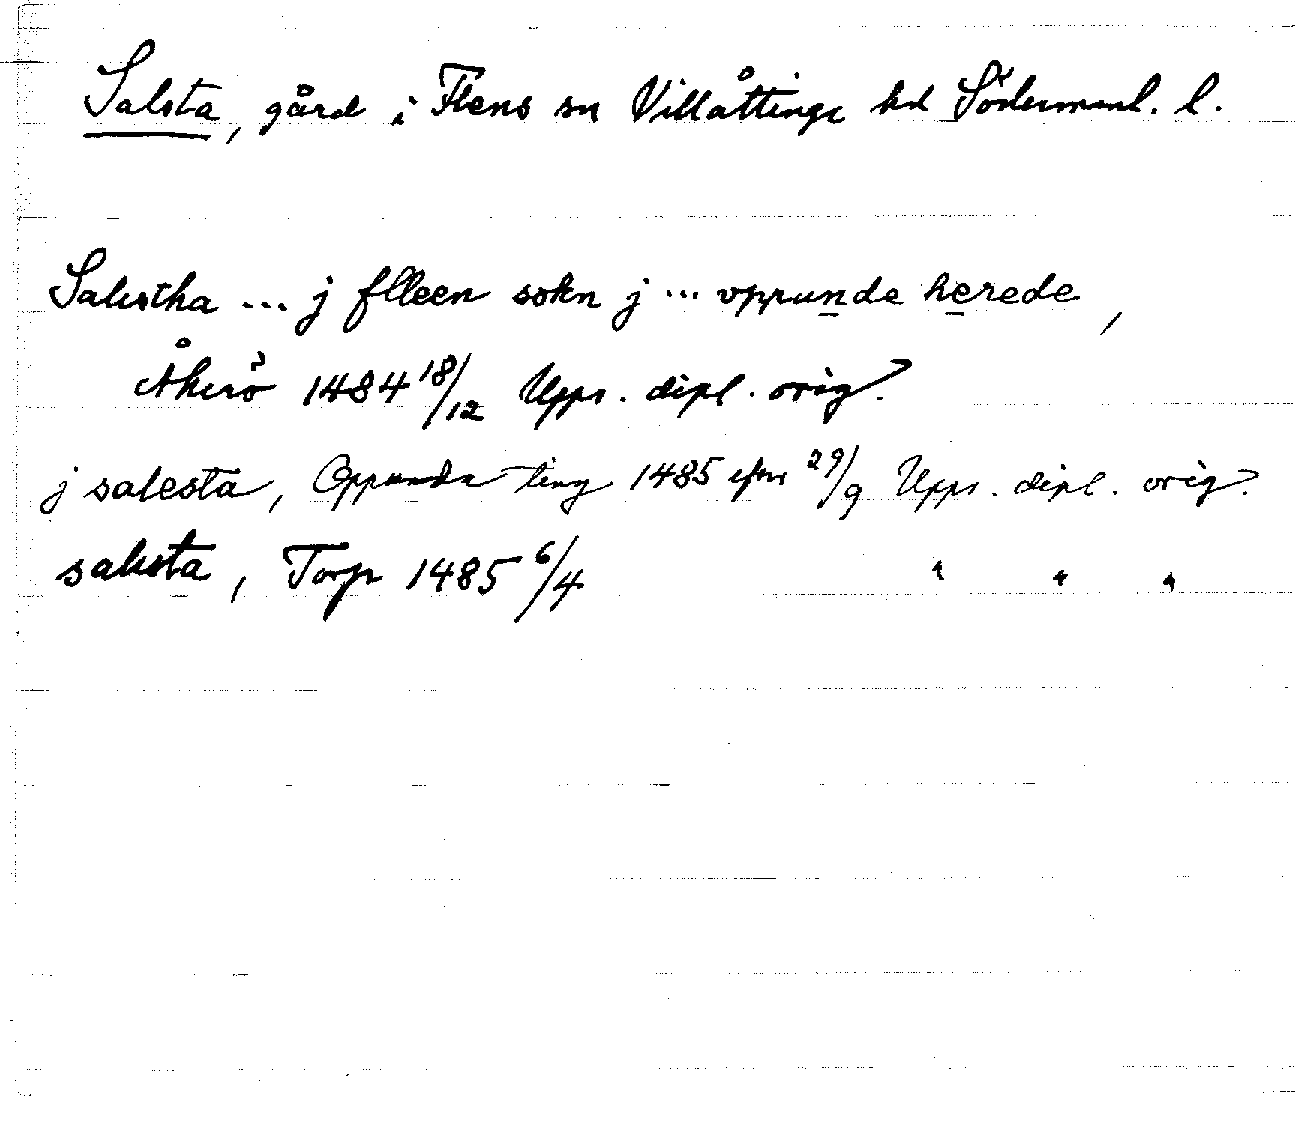 Salsta, gård i Flens sn Villåttinge hd Södermanl. l.
Salestha ... j flleen sokn j ... vppunda herede,
Åkerö 1484 18/12 Upps. dipl. orig.
j salesta, Oppunda ting 1485 efter 29/9 Upps. dipl. orig.
salesta, Torp 1485 6/4 " " "